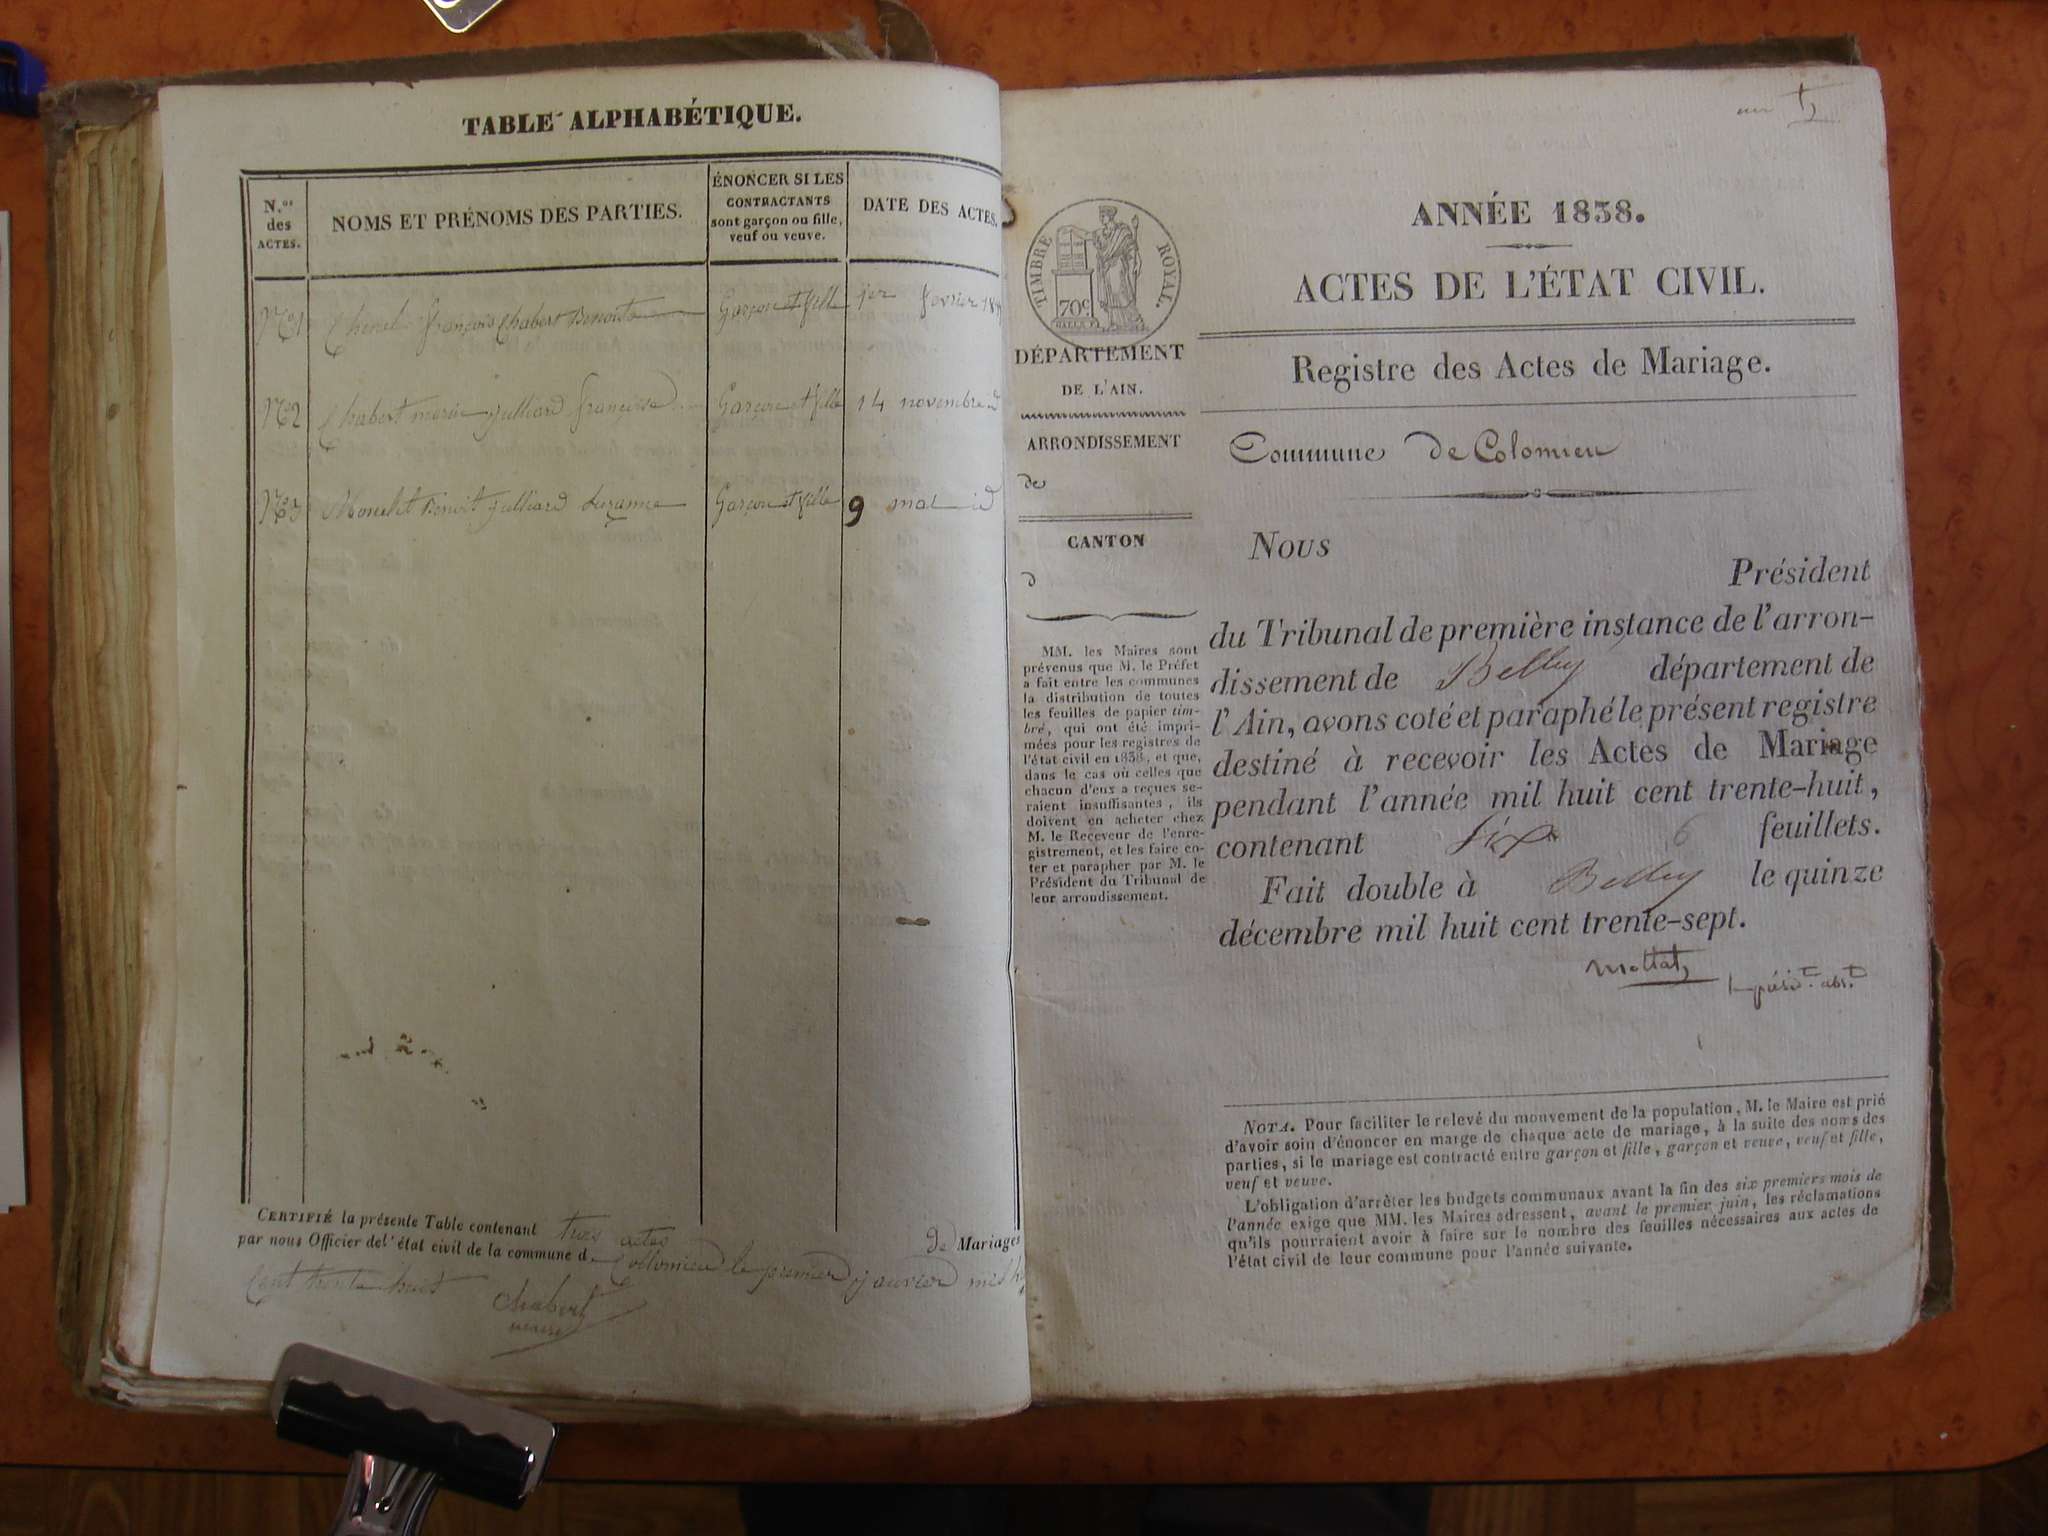 TABLE ALPHABÉTIQUE.
N.os des ACTES.
NOMS ET PRÉNOMS DES PARTIES.
ÉNONCER SI LES
CONTRACTANTS
sont garçon ou fille,
veuf ou veuve.
DATE DES ACTES.
No 1 françois Chabert Benoite Garçon et fille 1er fevrier
No 2 Chabert marin julliard françoise Garçon et fille 14 novembre id
No 3 Benoit julliard Suzanne Garçon et fille 9 mai id
CERTIFIÉ la présente Table contenant trois actes de Mariages
par nous Officier de l'état civil de la commune d Collomieu le premier janvier mil
Cent trente huit
Chabert
maire
TIMBRE ROYAL.
70c
DÉPARTEMENT
DE L'AIN.
ARRONDISSEMENT
de
CANTON
d
MM. les Maires sont
prévenus que M. le Préfet
a fait entre les communes
la distribution de toutes
les feuilles de papier tim-
bré, qui ont été impri-
mées pour les registres de
l'état civil en 1838, et que,
dans le cas où celles que
chacun d'eux a reçues se-
raient insuffisantes, ils
doivent en acheter chez
M. le Receveur de l'enre-
gistrement, et les faire co-
ter et parapher par M. le
Président du Tribunal de
leur arrondissement.
ANNÉE 1838.
ACTES DE L'ÉTAT CIVIL.
Registre des Actes de Mariage.
Commune de Colomieu
Nous
Président
du Tribunal de première instance de l'arron-
dissement de Belley département de
l'Ain, avons coté et paraphé le présent registre
destiné à recevoir les Actes de Mariage
pendant l'année mil huit cent trente-huit,
contenant six 6 feuillets.
Fait double à Belley le quinze
décembre mil huit cent trente-sept.
NOTA. Pour faciliter le relevé du mouvement de la population, M. le Maire est prié
d'avoir soin d'énoncer en marge de chaque acte de mariage, à la suite des noms des
parties, si le mariage est contracté entre garçon et fille, garçon et veuve, veuf et fille,
veuf et veuve.
L'obligation d'arrêter les budgets communaux avant la fin des six premiers mois de
l'année exige que MM. les Maires adressent, avant le premier juin, les réclamations
qu'ils pourraient avoir à faire sur le nombre des feuilles nécessaires aux actes de
l'état civil de leur commune pour l'année suivante.